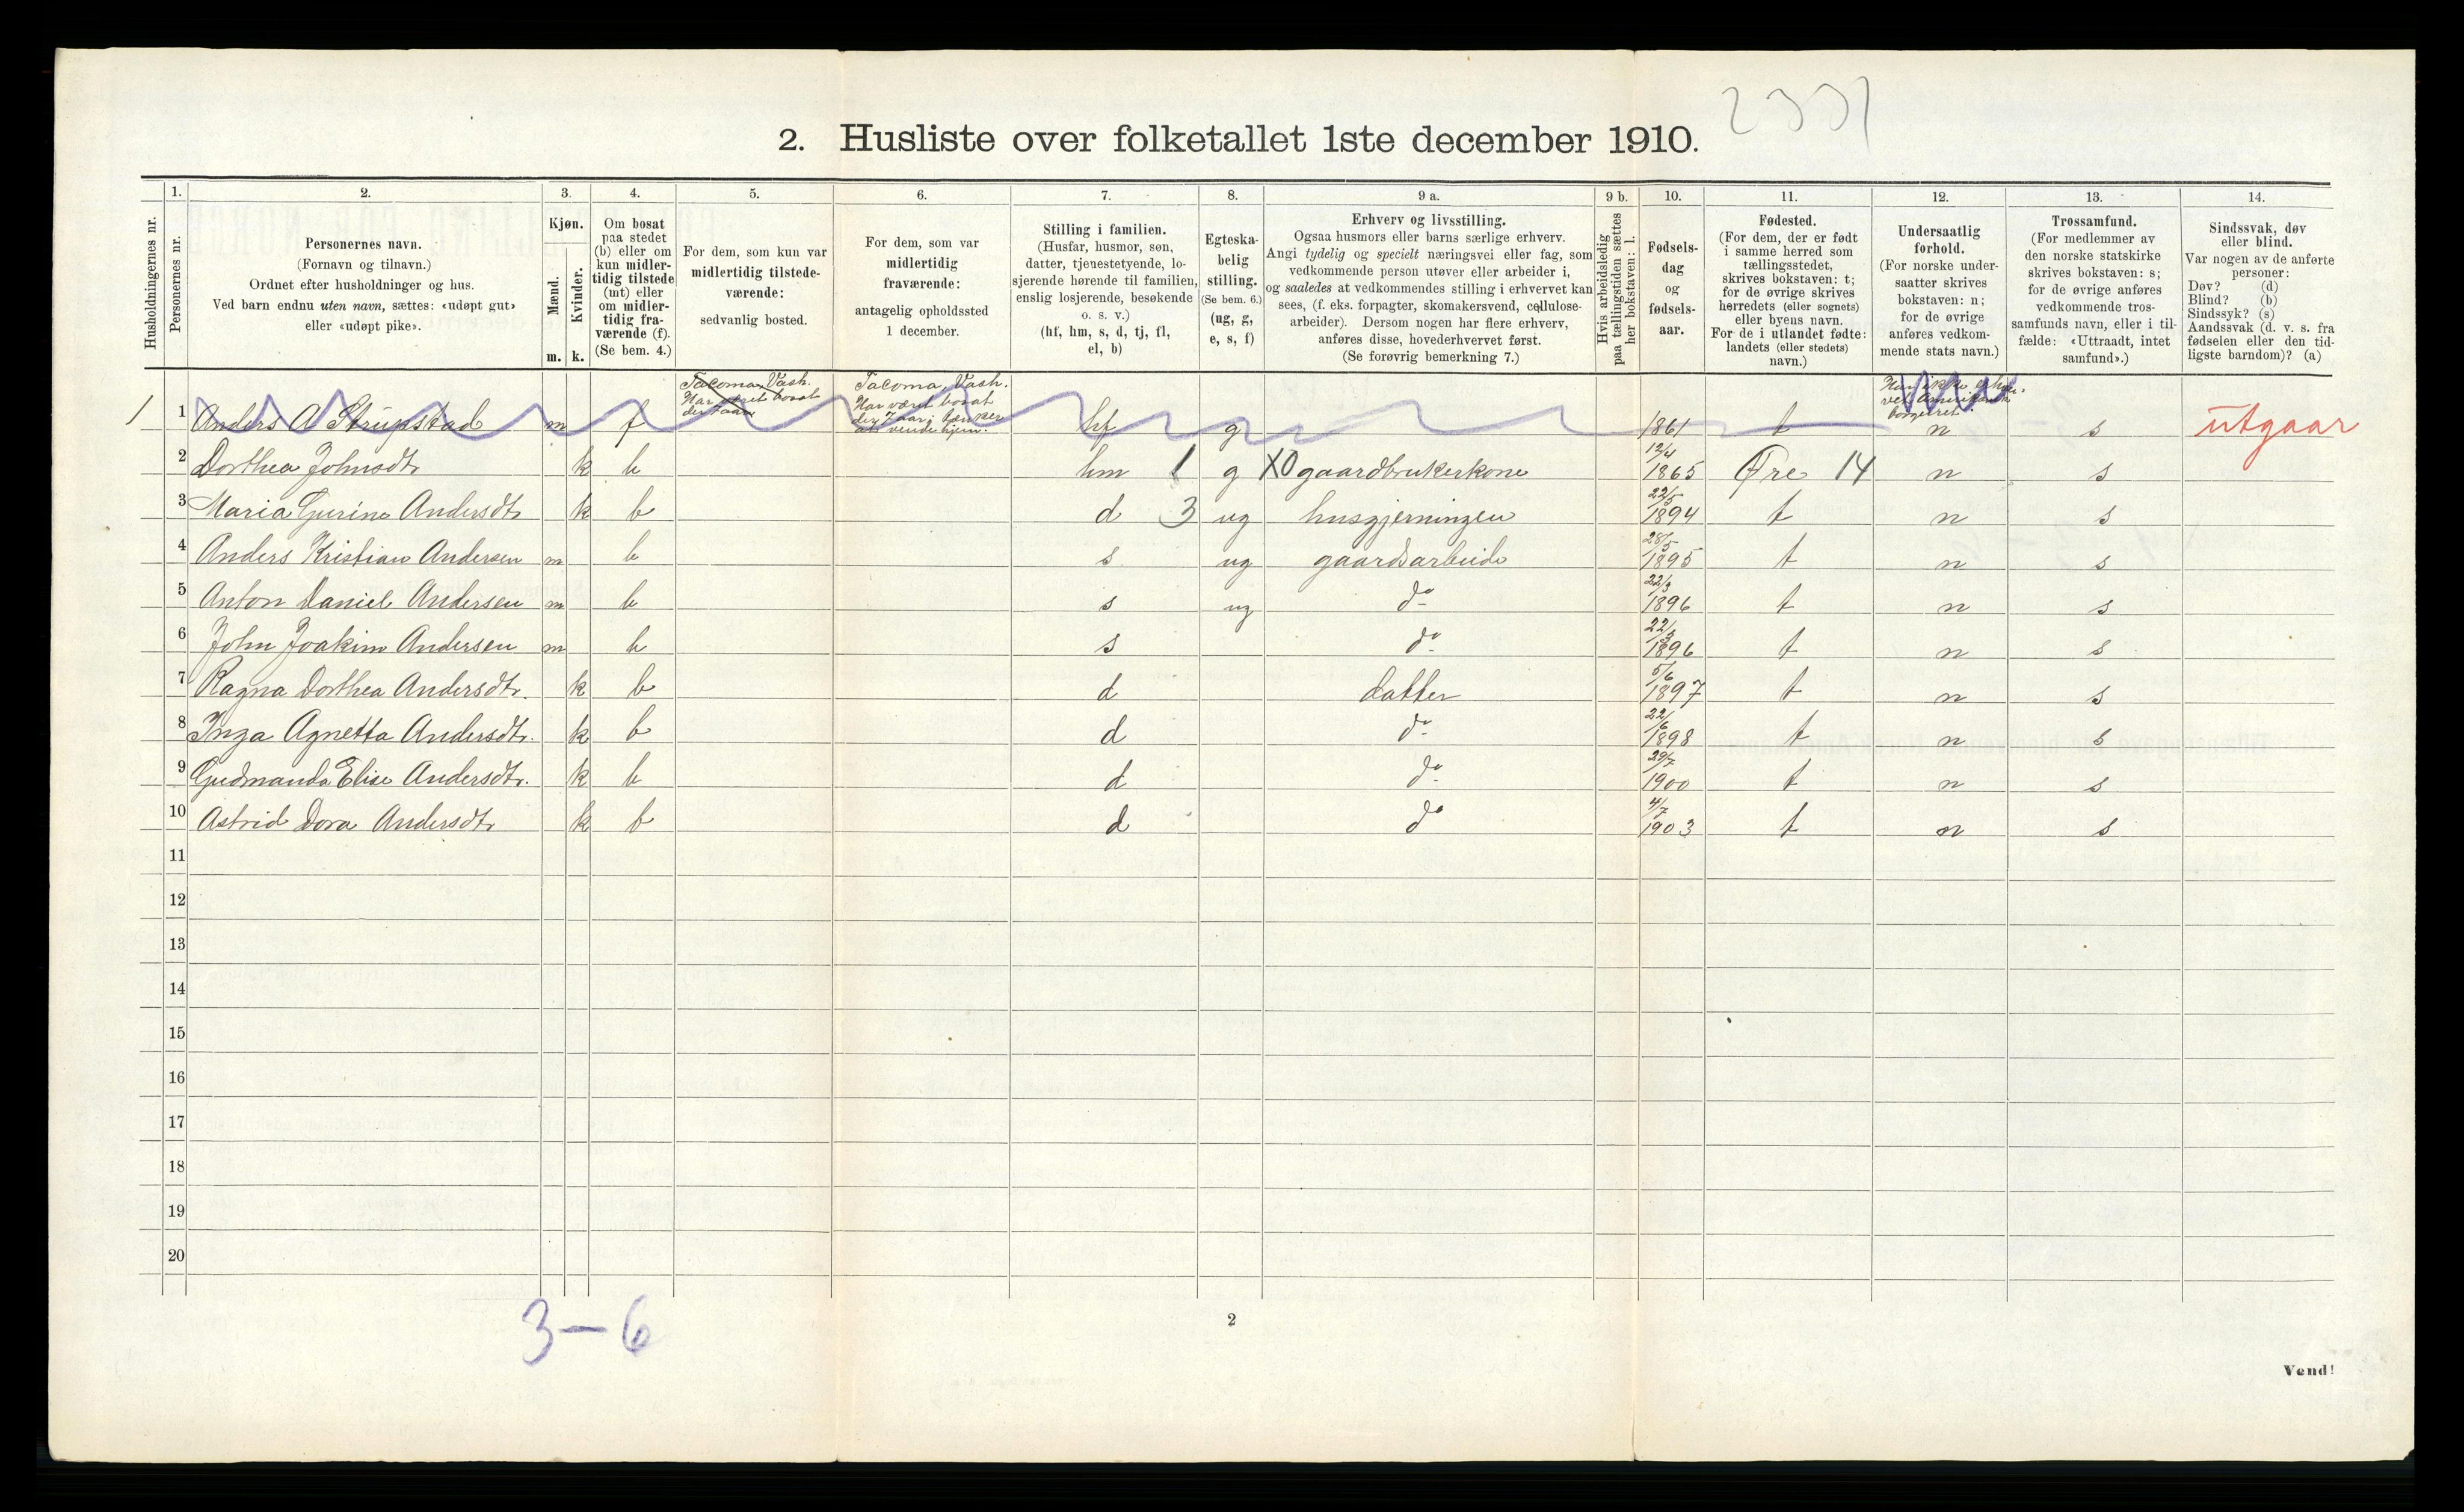 2331
2. Husliste over folketallet 1ste december 1910.
Husholdningernes nr.
1. Personernes nr.
2. Personernes navn.
(Fornavn og tilnavn.)
Ordnet efter husholdninger og hus.
Ved barn endnu uten navn, sættes: «udøpt gut»
eller «udøpt pike».
3. Kjøn.
Mænd. Kvinder.
m. k.
4. Om bosat
paa stedet
(b) eller om
kun midler-
tidig tilstede
(mt) eller
om midler-
tidig fra-
værende (f).
(Se bem. 4.)
5. For dem, som kun var
midlertidig tilstede-
værende:
sedvanlig bosted.
6. For dem, som var
midlertidig
fraværende:
antagelig opholdssted
1 december.
7. Stilling i familien.
(Husfar, husmor, søn,
datter, tjenestetyende, lo-
sjerende hørende til familien,
enslig losjerende, besøkende
o. s. v.)
(hf, hm, s, d, tj, fl,
el, b)
8. Egteska-
belig
stilling.
(Se bem. 6.)
(ug, g,
e, s, f)
9 a. Erhverv og livsstilling.
Ogsaa husmors eller barns særlige erhverv.
Angi tydelig og specielt næringsvei eller fag, som
vedkommende person utøver eller arbeider i,
og saaledes at vedkommendes stilling i erhvervet kan
sees, (f. eks. forpagter, skomakersvend, cellulose-
arbeider). Dersom nogen har flere erhverv,
anføres disse, hovederhvervet først.
(Se forøvrig bemerkning 7.)
9 b. Hvis arbeidsledig
paa tællingstiden sættes
her bokstaven: l.
10. Fødsels-
dag
og
fødsels-
aar.
11. Fødested.
(For dem, der er født
i samme herred som
tællingsstedet,
skrives bokstaven: t;
for de øvrige skrives
herredets (eller sognets)
eller byens navn.
For de i utlandet fødte:
landets (eller stedets)
navn.)
12. Undersaatlig
forhold.
(For norske under-
saatter skrives
bokstaven: n;
for de øvrige
anføres vedkom-
mende stats navn.)
13. Trossamfund.
(For medlemmer av
den norske statskirke
skrives bokstaven: s;
for de øvrige anføres
vedkommende tros-
samfunds navn, eller i til-
fælde: «Uttraadt, intet
samfund».)
14. Sindssvak, døv
eller blind.
Var nogen av de anførte
personer:
Døv? (d)
Blind? (b)
Sindssyk? (s)
Aandssvak (d. v. s. fra
fødselen eller den tid-
ligste barndom)? (a)
1 1 Anders A Strupstad m f Tacoma, Vash. Har været bosat der 7 aar Tacoma, Vash. Har været bosat der 7 aar; tænker at vende hjem. hf g 1861 t Har ikke erhver- vet Amerikansk borgerret. n s utgaar
2 Dorthea Johnsdtr k b hm 1 g XO gaardbrukerkone 12/4 1865 Øre 14 n s
3 Maria Gurine Andersdtr k b d 3 ug husgjerningen 22/5 1894 t n s
4 Anders Kristian Andersen m b s ug gaardsarbeide 28/5 1895 t n s
5 Anton Daniel Andersen m b s ug do 22/3 1896 t n s
6 John Joakim Andersen m b s do 22/3 1896 t n s
7 Ragna Dorthea Andersdtr. k b d datter 5/6 1897 t n s
8 Inga Agnetta Andersdtr. k b d do 22/6 1898 t n s
9 Gudmanda Elise Andersdtr. k b d do 29/7 1900 t n s
10 Astrid Dora Andersdtr k b d do 4/7 1903 t n s
11
12
13
14
15
16
17
18
19
20
3-6
2
Vend!